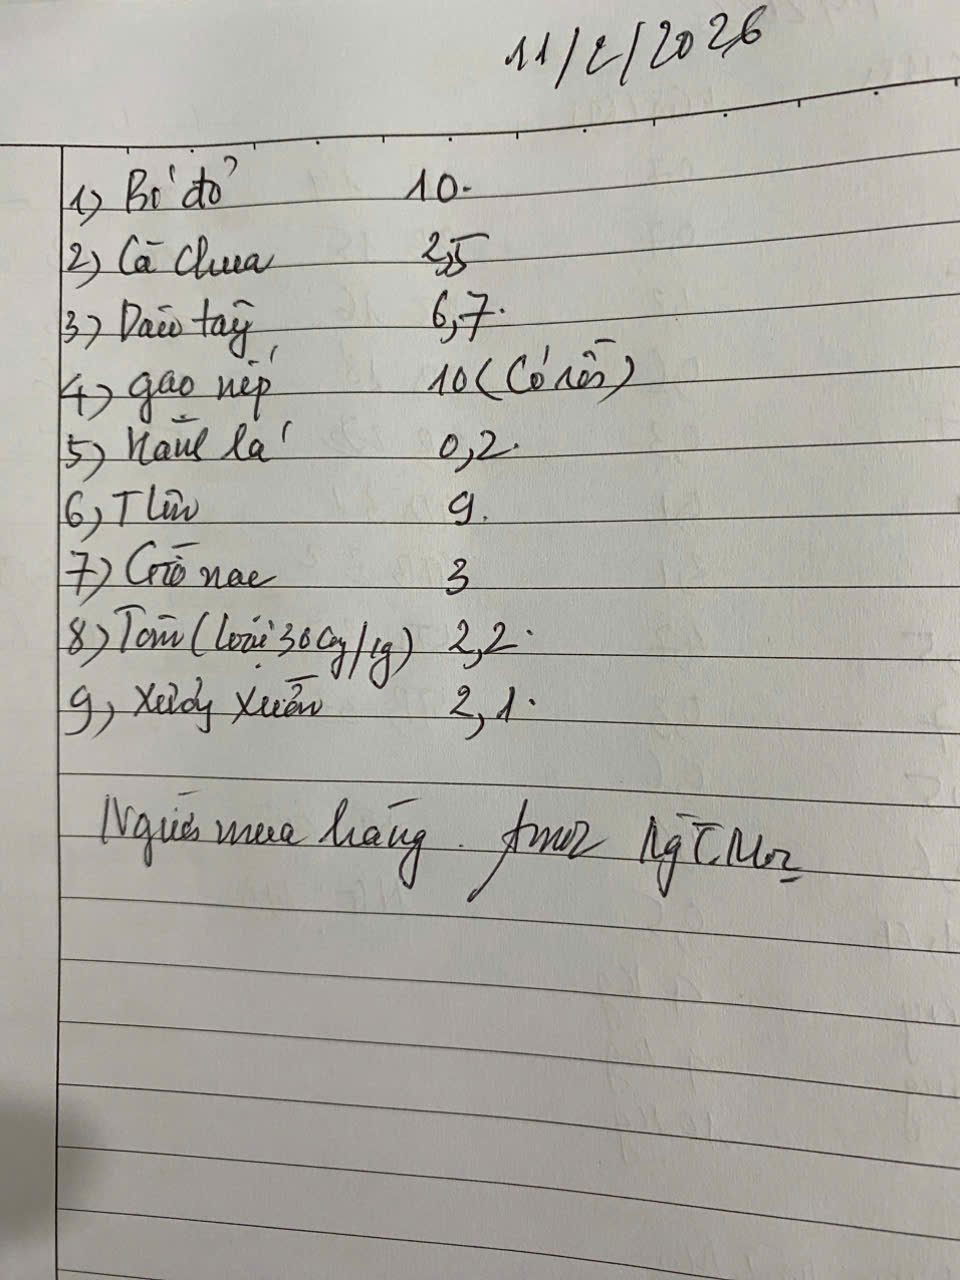 11/2/2026
1) Bí đỏ 10.
2) Cà chua 2,5
3) Dâu tây 6,7.
4) gạo nếp 10 (Có rồi)
5) Hành lá 0,2.
6) T lợn 9.
7) Giò nạc 3
8) Tôm (loại 30 con/kg) 2,2.
9) Xương xuân 2,1.
Người mua hàng.